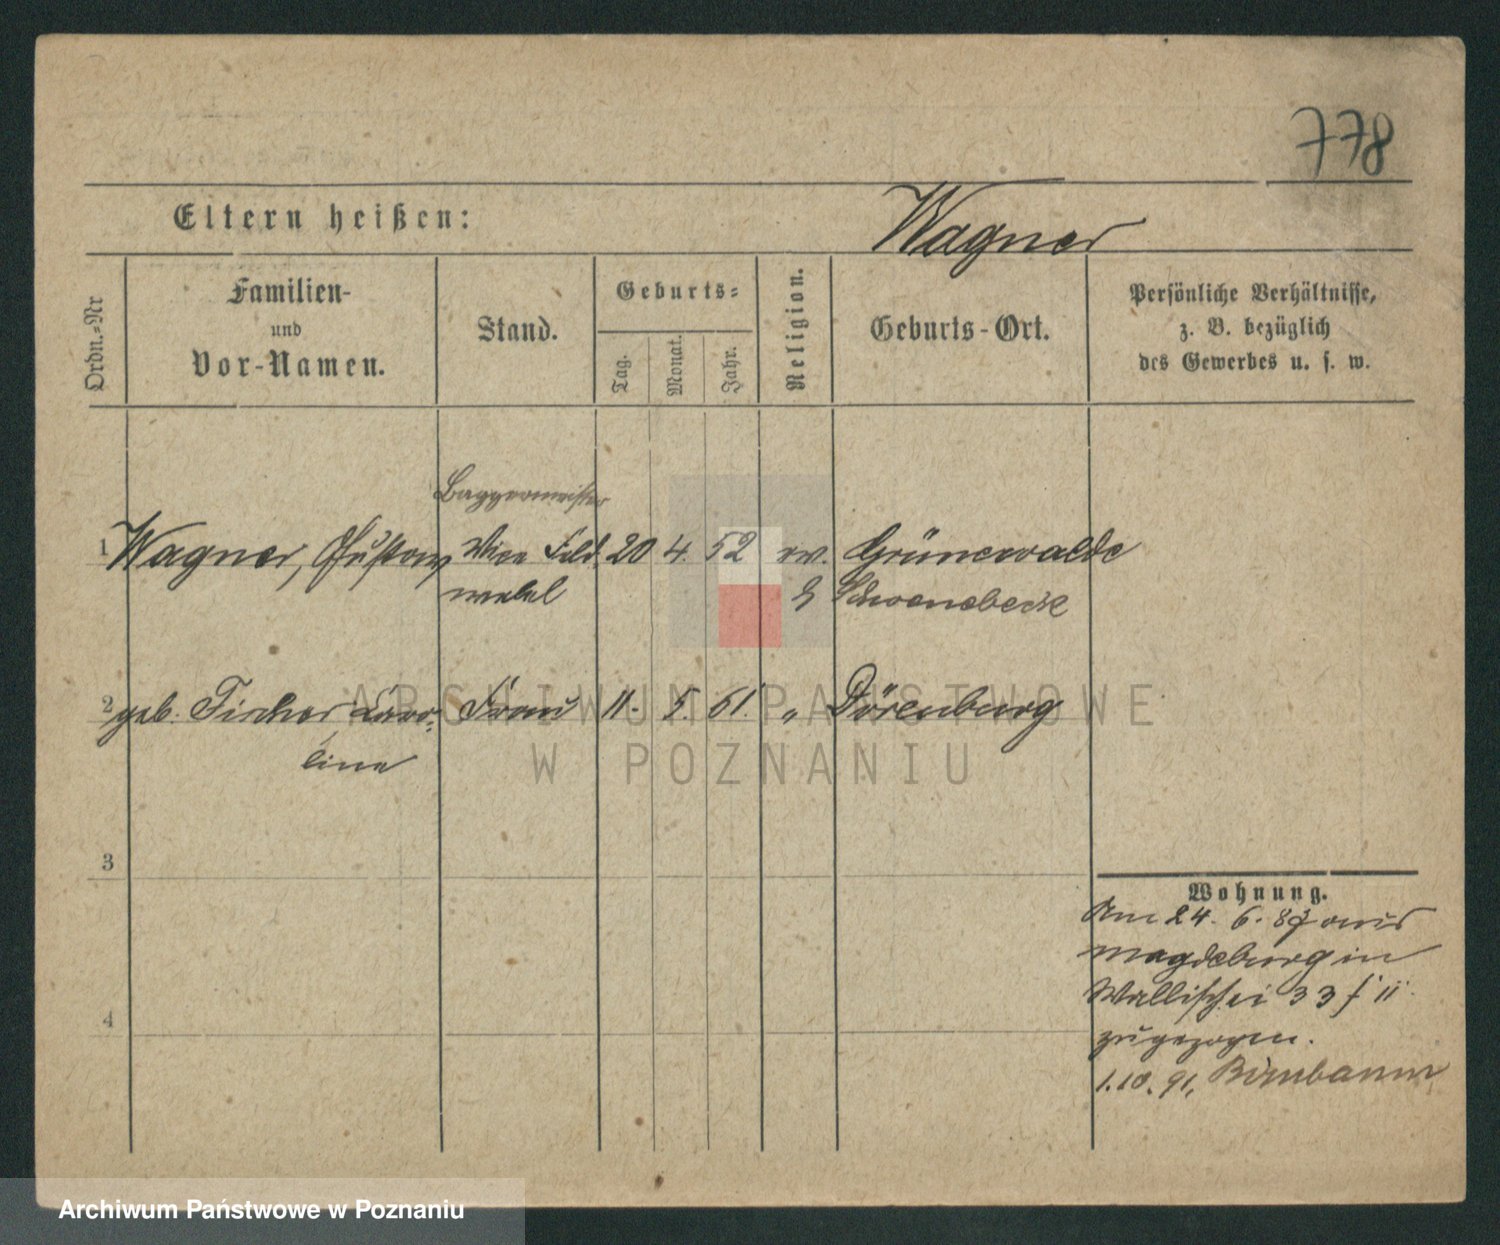 778
Eltern heißen:
Wagner
Ordn.-Nr
Familien-
und
Vor-Namen.
Stand.
Geburts-
Tag.
Monat.
Jahr.
Religion.
Geburts-Ort.
Persönliche Verhältnisse,
z. B. bezüglich
des Gewerbes u. s. w.
Baggermeister
1 Wagner, Gustav Vice Feld 20 4. 52 ev. Grünewalde
webel Schoenebeck
2 geb. Fischer Karo- Frau 11. 5. 61. " Dörenburg
line
3
4
Wohnung.
Am 24. 6. 87 aus
Magdeburg in
Wallischei 33 / II
zugezogen.
1.10.91, Birnbaum
ARCHIWUM PAŃSTWOWE
W POZNANIU
Archiwum Państwowe w Poznaniu